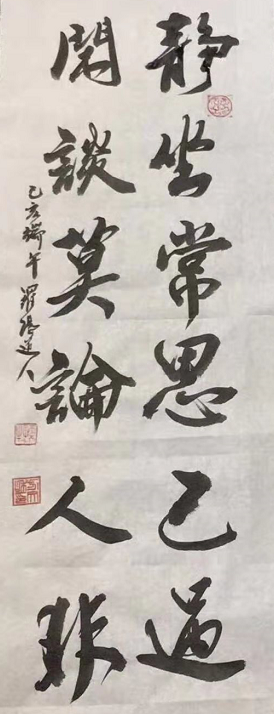 静坐常思己過
閑談莫論人非
己亥端午